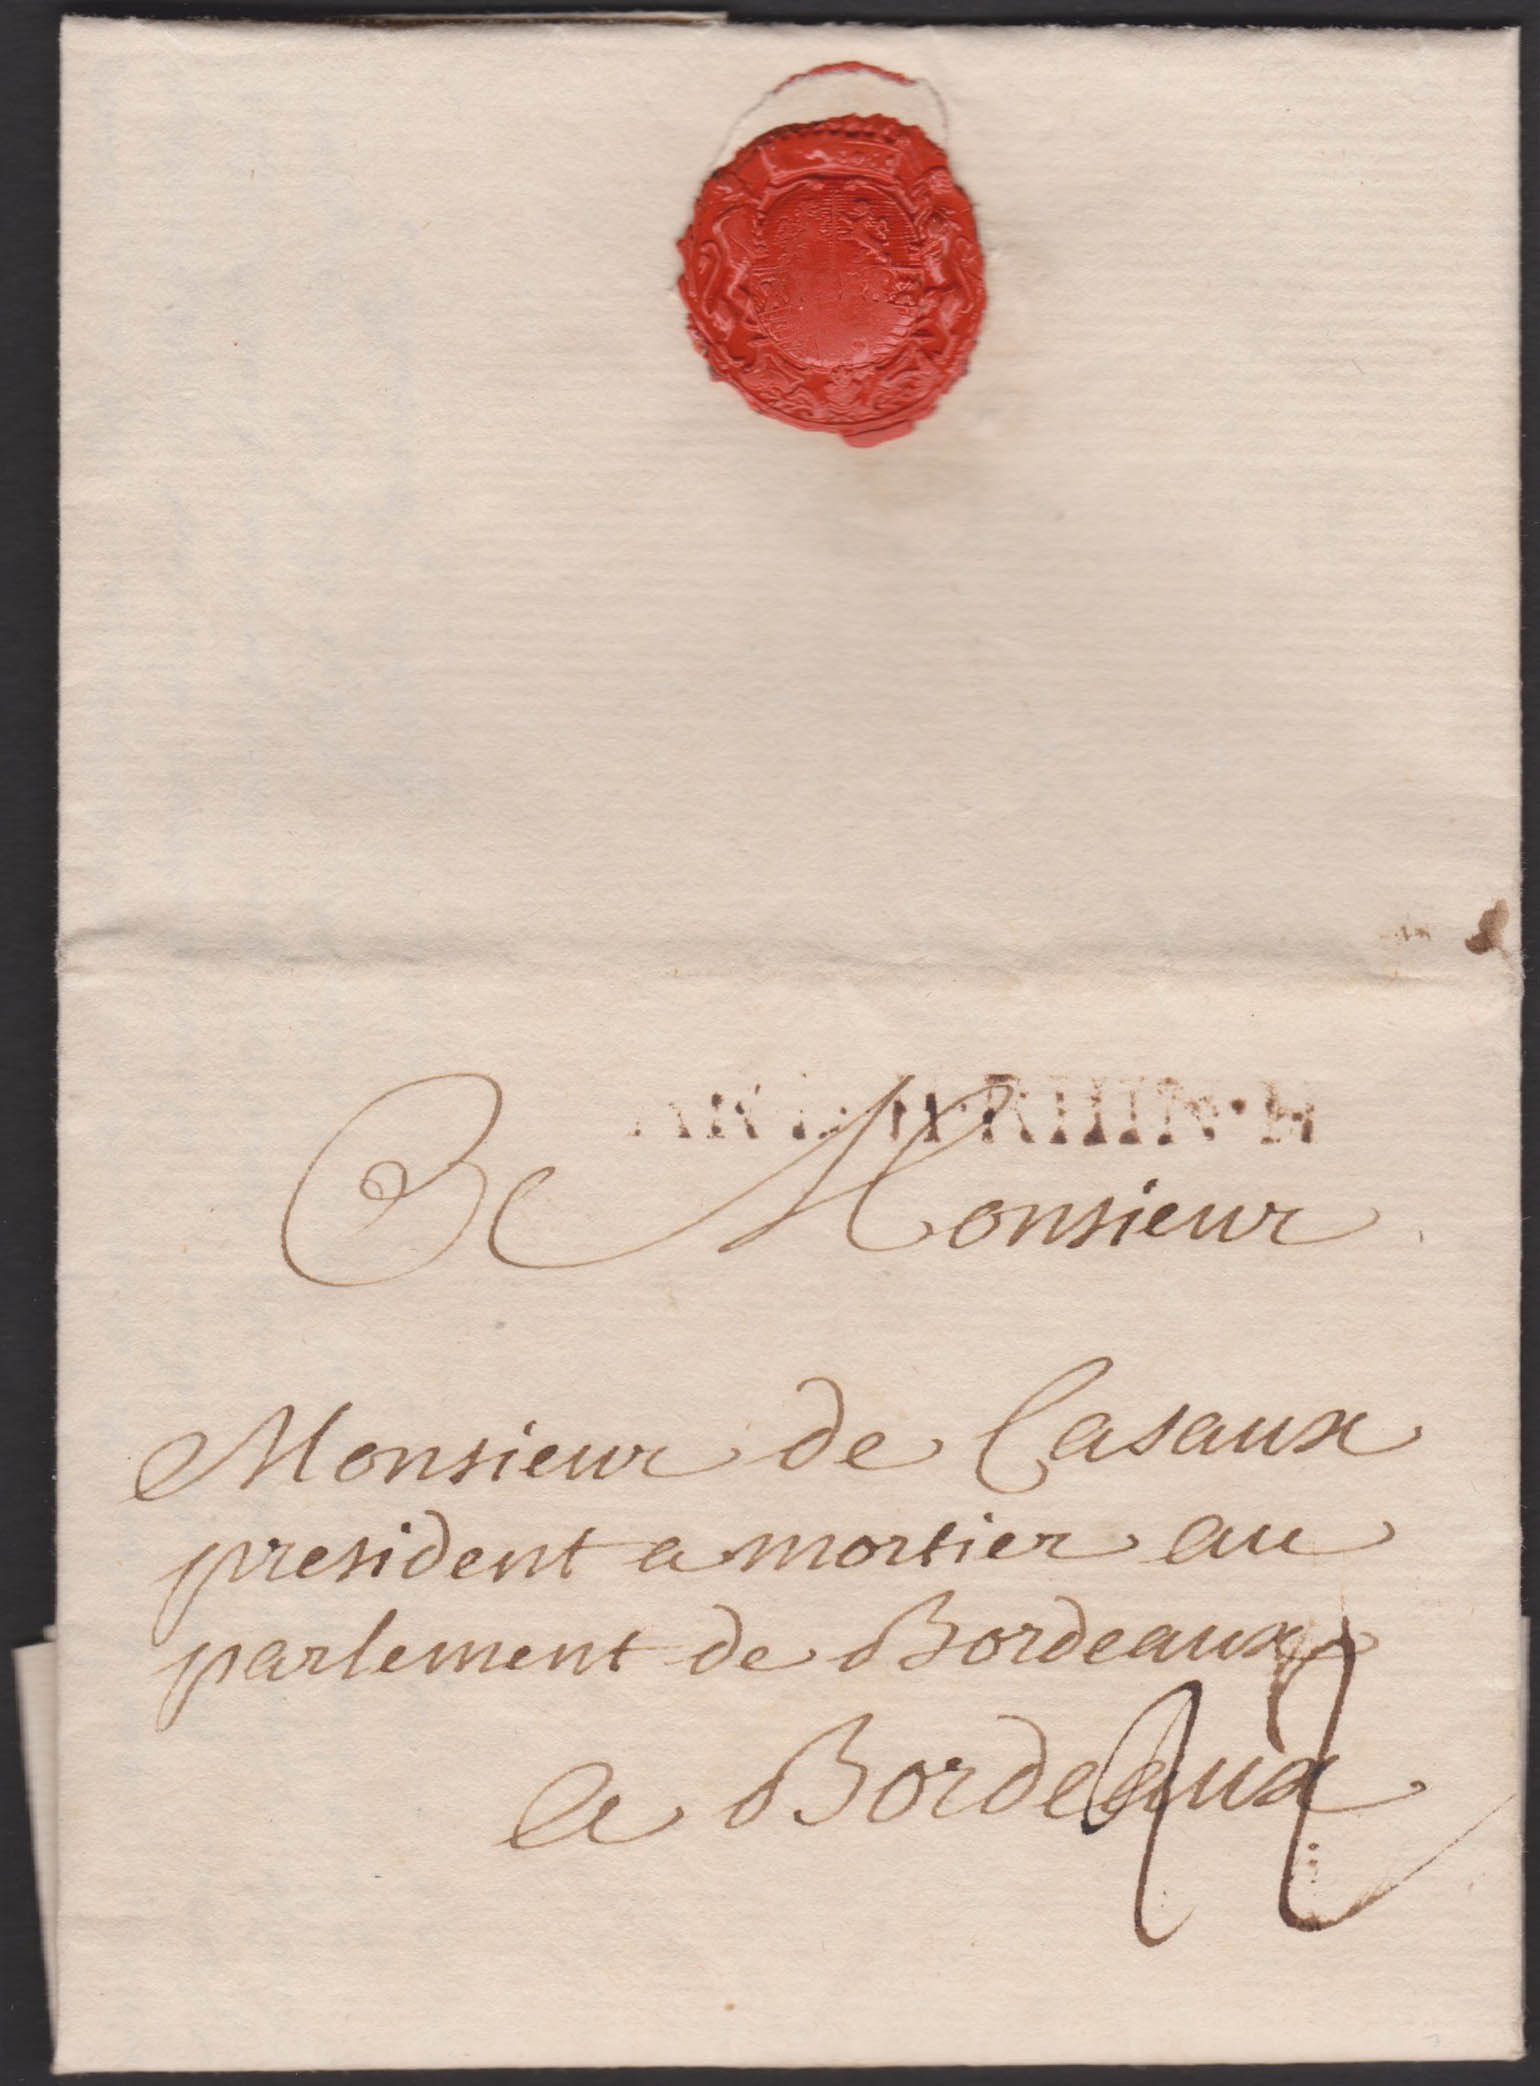 ARM·DU·RHIN·B
A Monsieur
Monsieur de Casaux
president a mortier au
parlement de Bordeaux
a Bordeaux